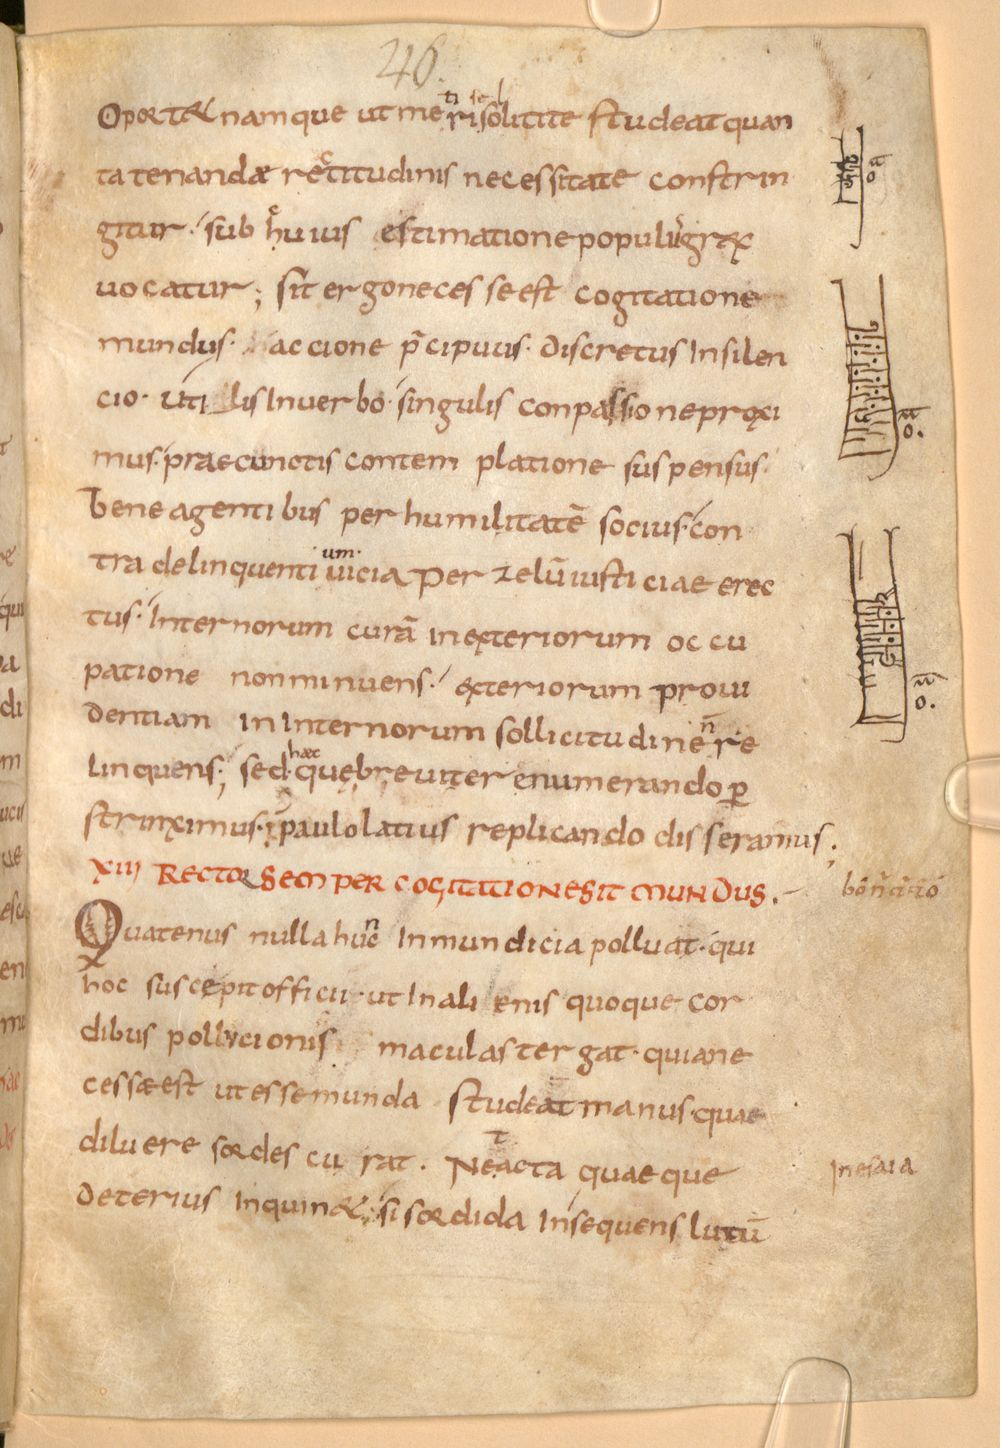 46.
Oportet namque ut metiri sollicite studeat quan
ta tenendae rectitudinis necessitate constrin
gitur. sub huius estimatione populus grex
uocatur; sit ergo necesse est cogitatione
mundus. accione p̄cipuus. discretus In silen
cio. utilis In uerbo. singulis conpassione proxi
mus. prae cunctis contem platione suspensus.
bene agentibus per humilitatē socius. con
tra delinquentium uicia per zelū iusticiae erec
tus. Internorum curā in exteriorum occu
patione non minuens. exteriorum proui
dentiam in Internorum sollicitudine n̄ re
linquens; sed haec quę breuiter enumerando ꝑ
strinximus. paulo latius replicando disseramus;
XIII Rector semper cogitatione sit mundus.
Quatenus nulla hunc Inmundicia polluat. qui
hoc suscepit officii. ut In alienis quoque cor
dibus pollucionis maculas tergat. quia ne
cesse est ut esse munda studeat manus. quae
diluere sordes curat. Ne tacta quaeque
deterius Inquinet. si sordida Insequens lutū
In esaia